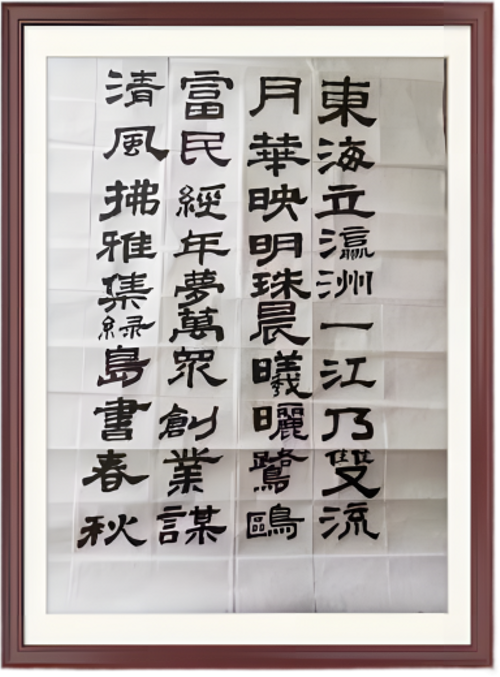 東海立瀛洲一江乃雙流
月華映明珠晨曦曬鷺鷗
富民經年夢萬衆創業謀
清風拂雅集緑島書春秋